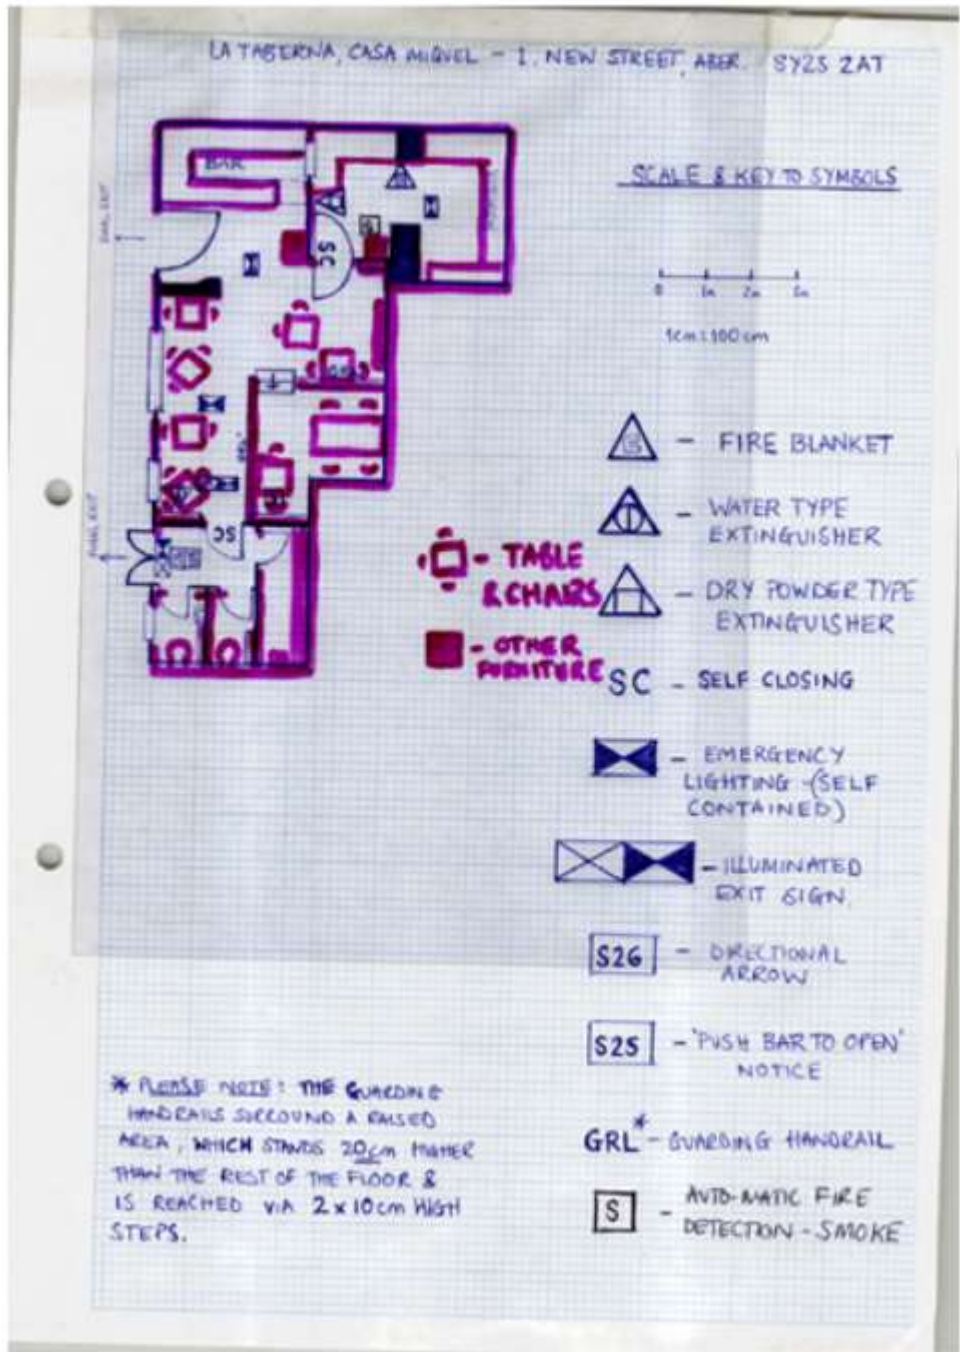 LA TABERNA, CASA MIGUEL - 1, NEW STREET, ABER. SY23 2AT
SCALE & KEY TO SYMBOLS
0 1m 2m 3m
1cm:100cm
BAR
SC
SC
FINAL EXIT
FINAL EXIT
- FIRE BLANKET
- WATER TYPE
EXTINGUISHER
- DRY POWDER TYPE
EXTINGUISHER
- TABLE
& CHAIRS
- OTHER
FURNITURE
SC - SELF CLOSING
- EMERGENCY
LIGHTING -(SELF
CONTAINED)
- ILLUMINATED
EXIT SIGN.
S26 - DIRECTIONAL
ARROW
S25 - 'PUSH BAR TO OPEN'
NOTICE
GRL* - GUARDING HANDRAIL
S - AUTO-MATIC FIRE
DETECTION - SMOKE
* PLEASE NOTE: THE GUARDING
HANDRAILS SURROUND A RAISED
AREA, WHICH STANDS 20cm HIGHER
THAN THE REST OF THE FLOOR &
IS REACHED VIA 2 x 10cm HIGH
STEPS.